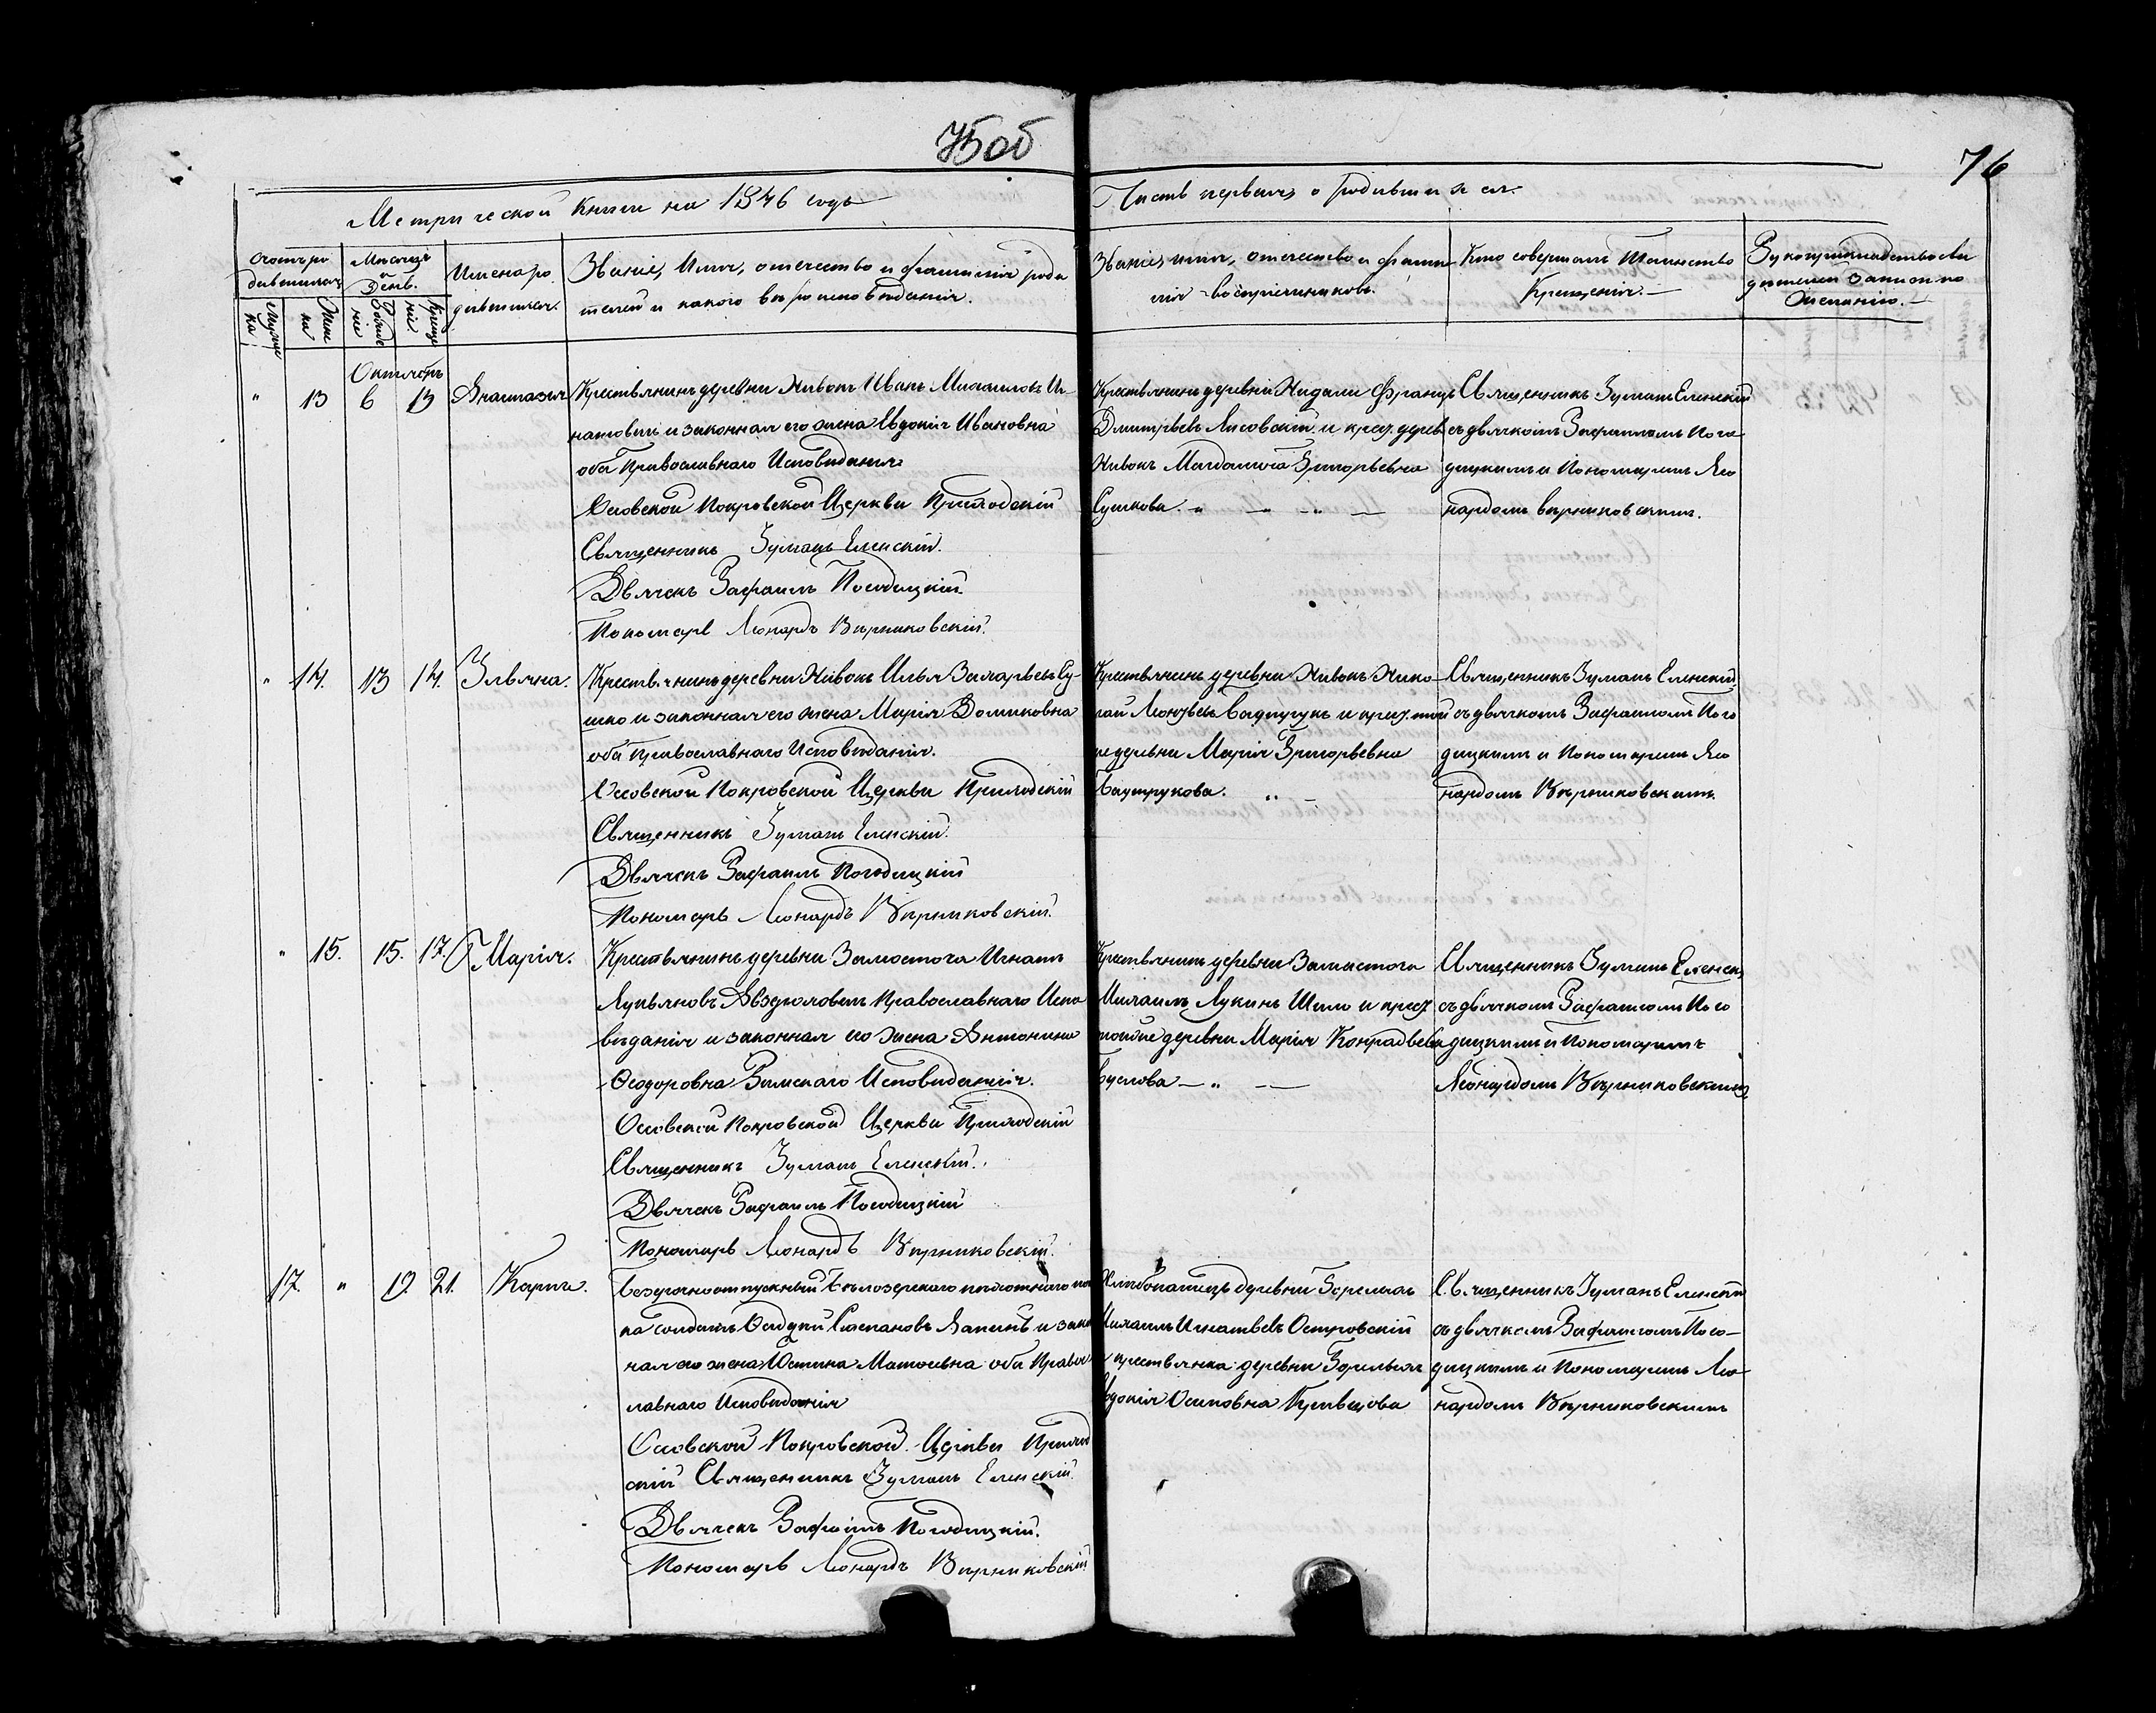 75об
76
Метрической Книги на 1846 годъ
Часть первая, о родившихся.
Счетъ родившихся
Мужеска
Женска
Месяцъ и день.
Рожденія
Крещенія
Имена родившихся.
Званіе, Имя, отечество и фамилія роди
телей и какого вѣроисповѣданія.
Званіе, имя, отечество и фами
лія воспріемниковъ.
Кто совершалъ Таинство
Крещенія.
Рукоприкладство сви
дѣтелей записи по
желанію.
Октябрь
" 13 6 13 Анастазія
Крестьянинъ деревни Нивокъ Иванъ Михаиловъ Иг-
натовичъ и законная его жена Евдокія Ивановна
оба Православнаго Исповѣданія
Осовской Покровской Церкви Приходскій
Священникъ Еленскій.
Дьячекъ Рафаилъ Погодицкій
Пономарь Леонардъ Вѣрниковскій.
Крестьянинъ деревни Францъ
Дмитріевъ Лисовскій и крест. дерев
Нивокъ Магдалина Григорьевна
Сушкова. " — " —
Священникъ Еленскій
съ дьячкомъ Рафаиломъ Пого
дицкимъ и Пономаремъ Лео
нардомъ Вѣрниковскимъ.
" 14. 13 14. Ульяна.
Крестьянинъ деревни Нивокъ Илья Захарьевъ Су-
шко и законная его жена Марія Доминковна
оба Православнаго Исповѣданія.
Осовской Покровской Церкви Приходскій
Священникъ Еленскій.
Дьячекъ Рафаилъ Погодицкій
Пономарь Леонардъ Вѣрниковскій.
Крестьянинъ деревни Нивокъ Нико-
лай и крест. той
же деревни Марія Григорьевна
Баутрукова. " —
Священникъ Еленскій
съ дьячкомъ Рафаиломъ Пого
дицкимъ и Пономаремъ Лео
нардомъ Вѣрниковскимъ.
" 15. 15. 17. Марія.
Крестьянинъ деревни Замосточа Игнатъ
Лукьяновъ Православнаго Испо
вѣданія и законная его жена Антонина
Ѳеодоровна Римскаго Исповѣданія.
Осовской Покровской Церкви Приходскій
Священникъ Еленскій.
Дьячекъ Рафаилъ Погодицкій
Пономарь Леонардъ Вѣрниковскій.
Крестьянинъ деревни Замосточа
Михаилъ Лукинъ Шило и крест
той же деревни Марія Конрадьева
Буслова — " —
Священникъ Еленскі
съ дьячкомъ Рафаиломъ Пого
дицкимъ и Пономаремъ
Леонардомъ Вѣрниковскимъ
17. " 19. 21. Карпъ.
Безсрочноотпускный Бѣлозерскаго пѣхотнаго пол
ка солдатъ Степановъ Лапинъ и закон
ная его жена Юстина Матѳіевна оба Правос
лавнаго Исповѣданія
Осовской Покровской Церкви Приход
скій Священникъ Еленскій.
Дьячекъ Рафаилъ Погодицкій.
Пономарь Леонардъ Вѣрниковскій
Хлѣбопашецъ деревни
Михаилъ Игнатьевъ Островскій
и крестьянка деревни
Евдокія Осиповна Кривцова
Священникъ Еленскій
съ дьячкомъ Рафаиломъ Пого-
дицкимъ и Пономаремъ Лео
нардомъ Вѣрниковскимъ